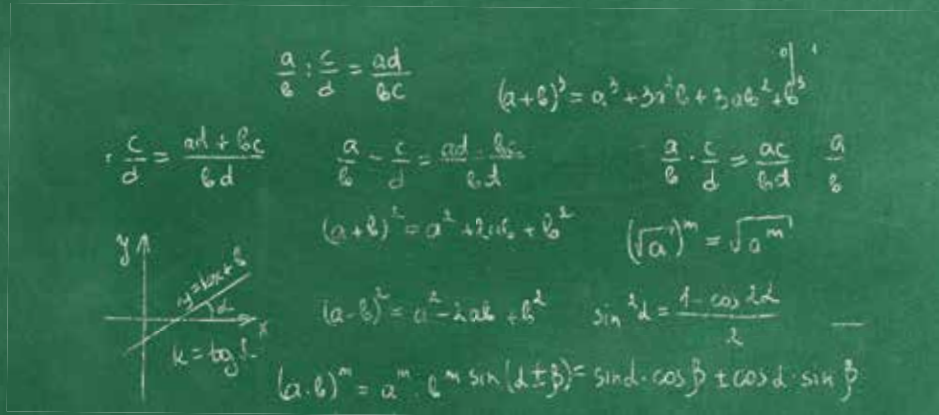 a/b : c/d = ad/bc
(a+b)³ = a³ + 3a²b + 3ab² + b³
c/d = ad + bc/bd
a/b - c/d = ad - bc/bd
a/b · c/d = ac/bd a/b
(a+b)² = a² + 2ab + b²
(√a)ᵐ = √aᵐ
y
y=kx+b
α
x
k = tg
(a-b)² = a² - 2ab + b²
sin²α = 1 - cos 2α/2
(a·b)ᵐ = aᵐ · bᵐ
sin(α±β) = sinα·cosβ ± cosα·sinβ